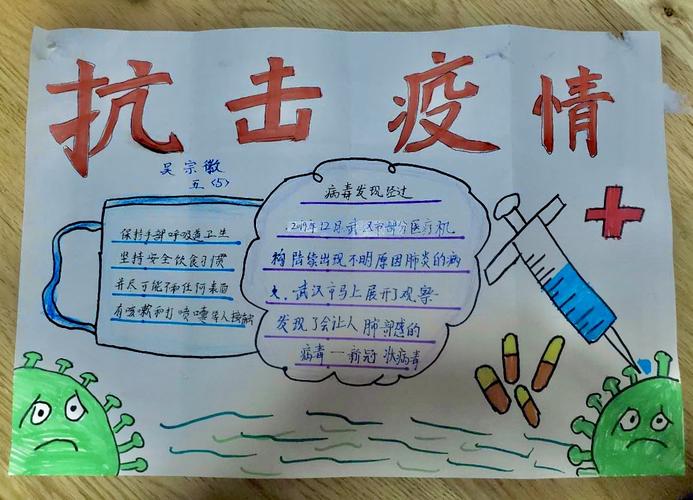 抗击疫情
吴宗徽
五〈5〉
保持手部呼吸道卫生
坚持安全饮食习惯
并尽可能不和任何表面
有咳嗽和打喷嚏等人接触
病毒发现经过
2019年12月.武汉市部分医疗机
构陆续出现不明原因肺炎的病
人.武汉市马上展开了观察.
发现了会让人肺部感的
病毒一新冠状病毒